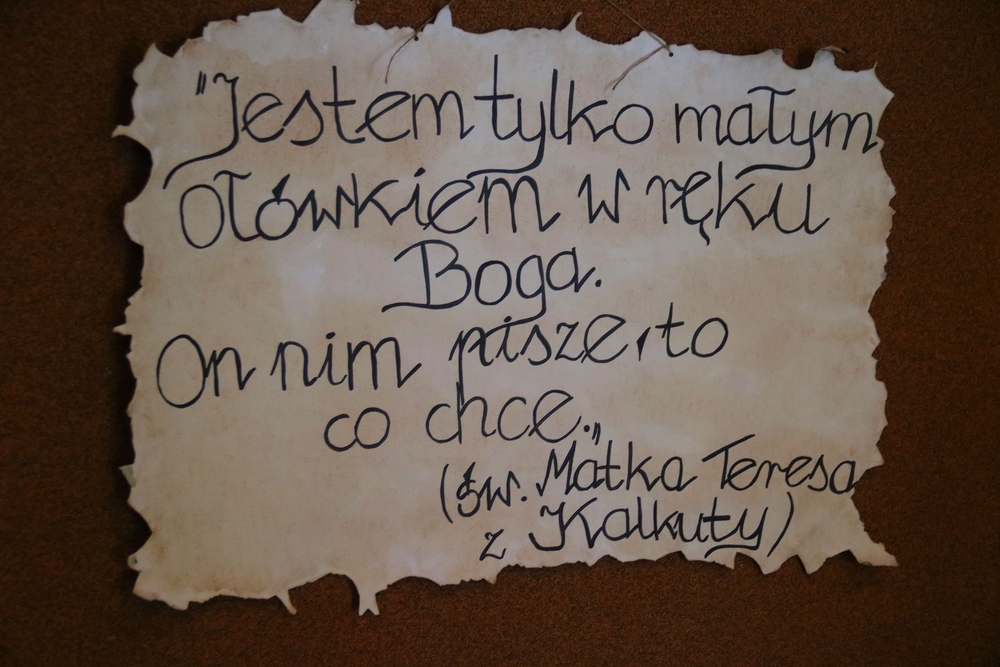 "Jestem tylko małym
ołówkiem w ręku
Boga.
On nim pisze, to
co chce."
(św. Matka Teresa
z Kalkuty)